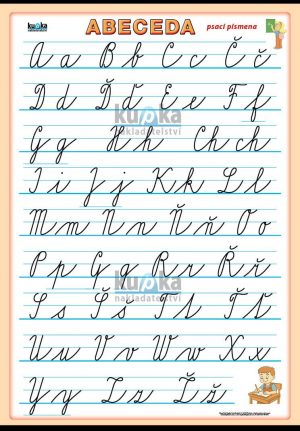 kupka
ABECEDA
psací písmena
A a B b C c Č č
D d Ď ď E e F f
kupka
nakladatelství
G g H h Ch ch
I i J j K k L l
M m N n Ň ň O o
P p Q q R r Ř ř
kupka
nakladatelství
S s Š š T t Ť ť
U u V v W w X x
Y y Z z Ž ž